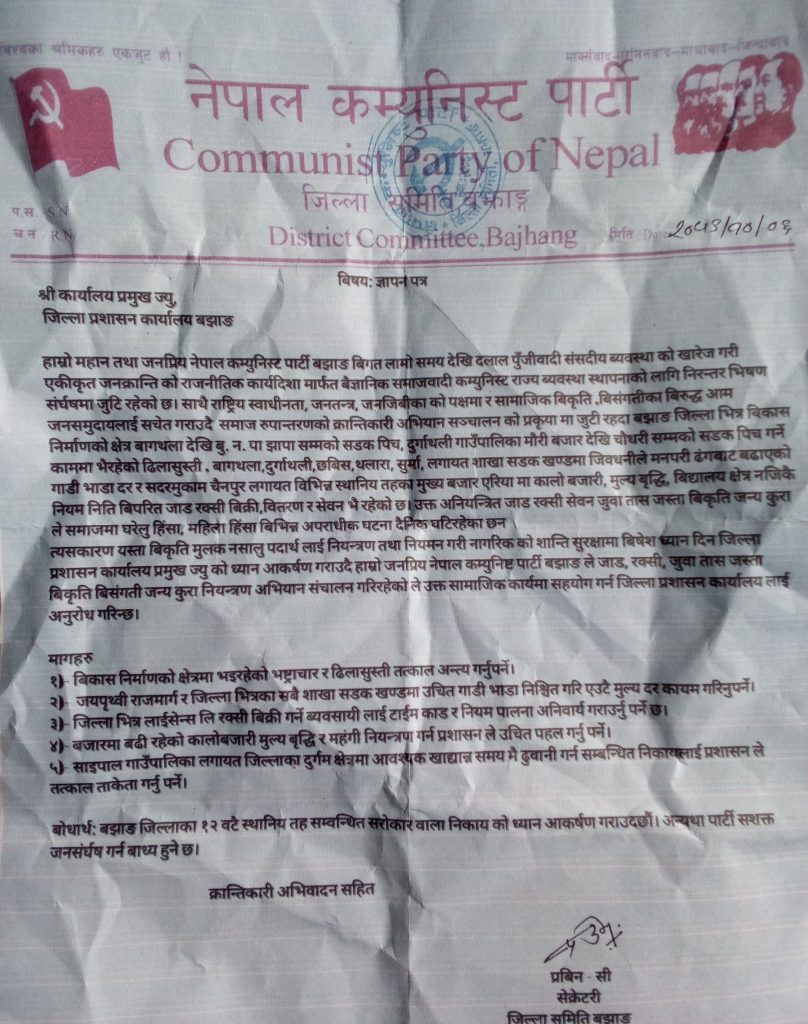 विश्वका श्रमिकहरु एकजुट हौ !
मार्क्सवाद-लेनिनवाद-माओवाद-जिन्दावाद
नेपाल कम्युनिस्ट पार्टी
Communist Party of Nepal
जिल्ला समिति बझाङ्ग
District Committee,Bajhang
प.स. S.N
च.न. R.N
मिति Date २०७३/१०/०६
बिषय: ज्ञापन पत्र
श्री कार्यालय प्रमुख ज्यु,
जिल्ला प्रशासन कार्यालय बझाङ
हाम्रो महान तथा जनप्रिय नेपाल कम्युनिस्ट पार्टी बझाङ बिगत लामो समय देखि दलाल पुँजीवादी संसदीय ब्यवस्था को खारेज गरी
एकीकृत जनक्रान्ति को राजनीतिक कार्यदिशा मार्फत बैज्ञानिक समाजवादी कम्युनिस्ट राज्य ब्यवस्था स्थापनाको लागि निरन्तर भिषण
संर्घषमा जुटि रहेको छ। साथै राष्ट्रिय स्वाधीनता, जनतन्त्र, जनजिबीका को पक्षमा र सामाजिक बिकृति ,बिसंगतीका बिरुद्ध आम
जनसमुदायलाई सचेत गराउदै समाज रुपान्तरणको क्रान्तिकारी अभियान सञ्चालन को प्रकृया मा जुटी रहदा बझाङ जिल्ला भित्र बिकास
निर्माणको क्षेत्र बागथला देखि बु. न. पा झापा सम्मको सडक पिच, दुर्गाथली गाउँपालिका मौरी बजार देखि चौधरी सम्मको सडक पिच गर्ने
काममा भैरहेको ढिलासुस्ती , बागथला,दुर्गाथली,छबिस,थलारा, सुर्मा, लगायत शाखा सडक खण्डमा जिवधनीले मनपरी ढंगबाट बढाएको
गाडी भाडा दर र सदरमुकाम चैनपुर लगायत विभिन्न स्थानिय तहका मुख्य बजार एरिया मा कालो बजारी, मुल्य बृद्धि, बिद्यालय क्षेत्र नजिकै
नियम निति बिपरित जाड रक्सी बिक्री,वितरण र सेवन भै रहेको छ। उक्त अनियन्त्रित जाड रक्सी सेवन जुवा तास जस्ता बिकृति जन्य कुरा
ले समाजमा घरेलु हिंसा, महिला हिंसा बिभिन्न अपराधीक घटना दैनिक घटिरहेका छन
त्यसकारण यस्ता बिकृति मुलक नसालु पदार्थ लाई नियन्त्रण तथा नियमन गरी नागरिक को शान्ति सुरक्षामा बिषेश ध्यान दिन जिल्ला
प्रशासन कार्यालय प्रमुख ज्यु को ध्यान आकर्षण गराउदै हाम्रो जनप्रिय नेपाल कम्युनिष्ट पार्टी बझाङ ले जाड, रक्सी, जुवा तास जस्ता
बिकृति बिसंगती जन्य कुरा नियन्त्रण अभियान संचालन गरिरहेको ले उक्त सामाजिक कार्यमा सहयोग गर्न जिल्ला प्रशासन कार्यालय लाई
अनुरोध गरिन्छ।
मागहरु
१)- बिकास निर्माणको क्षेत्रमा भइरहेको भष्ट्राचार र ढिलासुस्ती तत्काल अन्त्य गर्नुपर्ने।
२)- जयपृथ्वी राजमार्ग र जिल्ला भित्रका सबै शाखा सडक खण्डमा उचित गाडी भाडा निश्चित गरि एउटै मुल्य दर कायम गरिनुपर्ने।
३)- जिल्ला भित्र लाईसेन्स लि रक्सी बिक्री गर्ने ब्यवसायी लाई टाईम काड र नियम पालना अनिवार्य गराउर्नु पर्ने छ।
४)- बजारमा बढी रहेको कालोबजारी मुल्य बृद्धि र महंगी नियन्त्रण गर्न प्रशासन ले उचित पहल गर्नु पर्ने।
५)- साइपाल गाउँपालिका लगायत जिल्लाका दुर्गम क्षेत्रमा आवश्यक खाद्यान्न समय मै ढुवानी गर्न सम्बन्धित निकायलाई प्रशासन ले
तत्काल ताकेता गर्नु पर्ने।
बोधार्थ: बझाङ जिल्लाका १२ वटै स्थानिय तह सम्वन्धित सरोकार वाला निकाय को ध्यान आकर्षण गराउदछौं। अन्यथा पार्टी सशक्त
जनसंर्घष गर्न बाध्य हुने छ।
क्रान्तिकारी अभिवादन सहित
प्रबिन - सी
सेक्रेटरी
जिल्ला समिति बझाङ